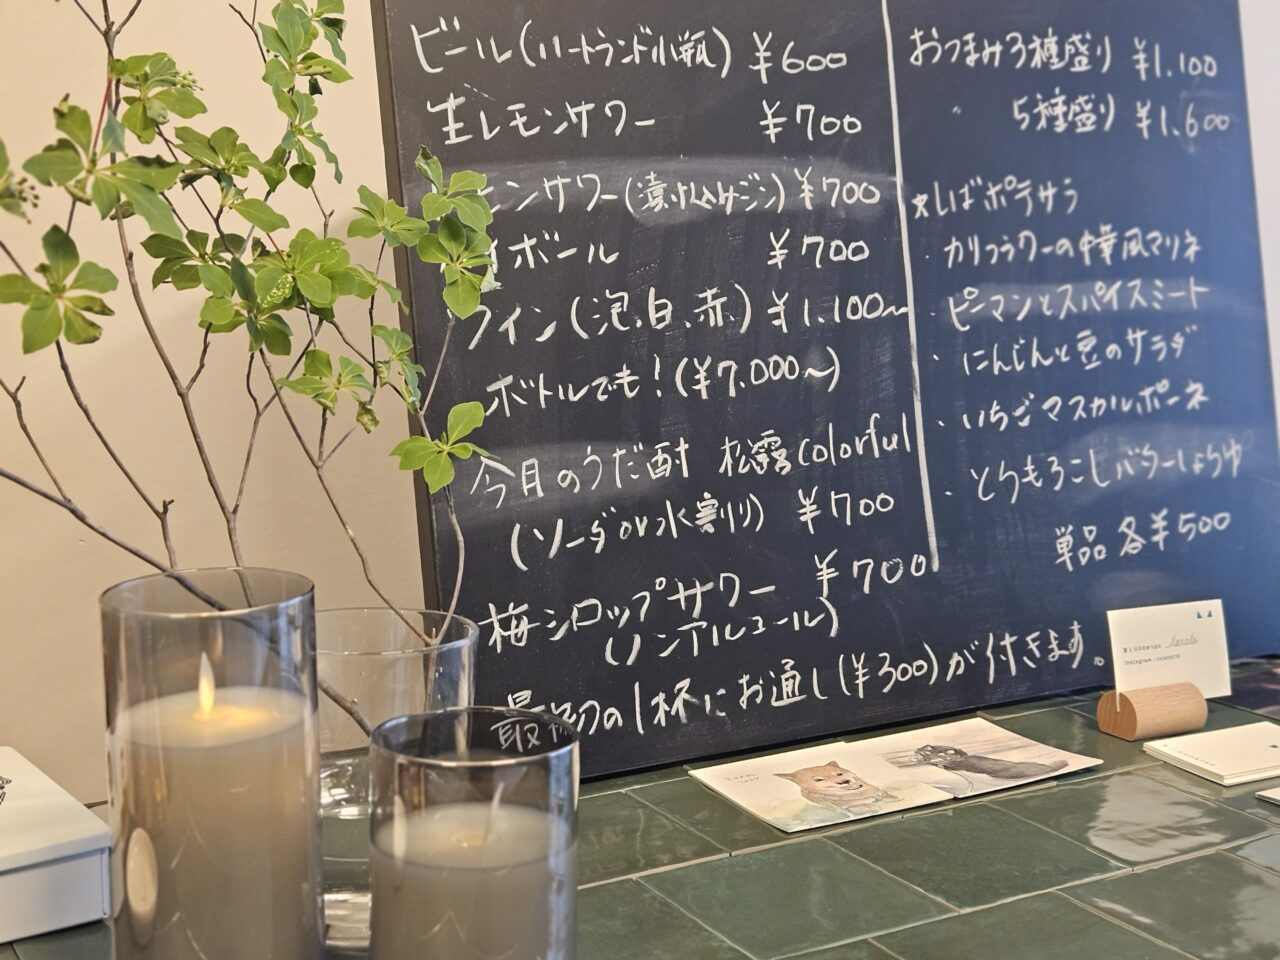 ビール(ハートランド小瓶) ¥600
生レモンサワー ¥700
モンサワー(漬け込みジン) ¥700
イボール ¥700
ワイン(泡、白、赤) ¥1.100〜
ボトルでも!(¥7.000〜)
今月のうだ酎 松露colorful
(ソーダor水割り) ¥700
梅シロップサワー ¥700
(ノンアルコール)
最初の1杯にお通し(¥300)が付きます。
おつまみ3種盛り ¥1.100
〃 5種盛り ¥1.600
★しばポテサラ
・カリフラワーの中華風マリネ
・ピーマンとスパイスミート
・にんじんと豆のサラダ
・いちごマスカルポーネ
・とうもろこしバターしょうゆ
単品各¥500